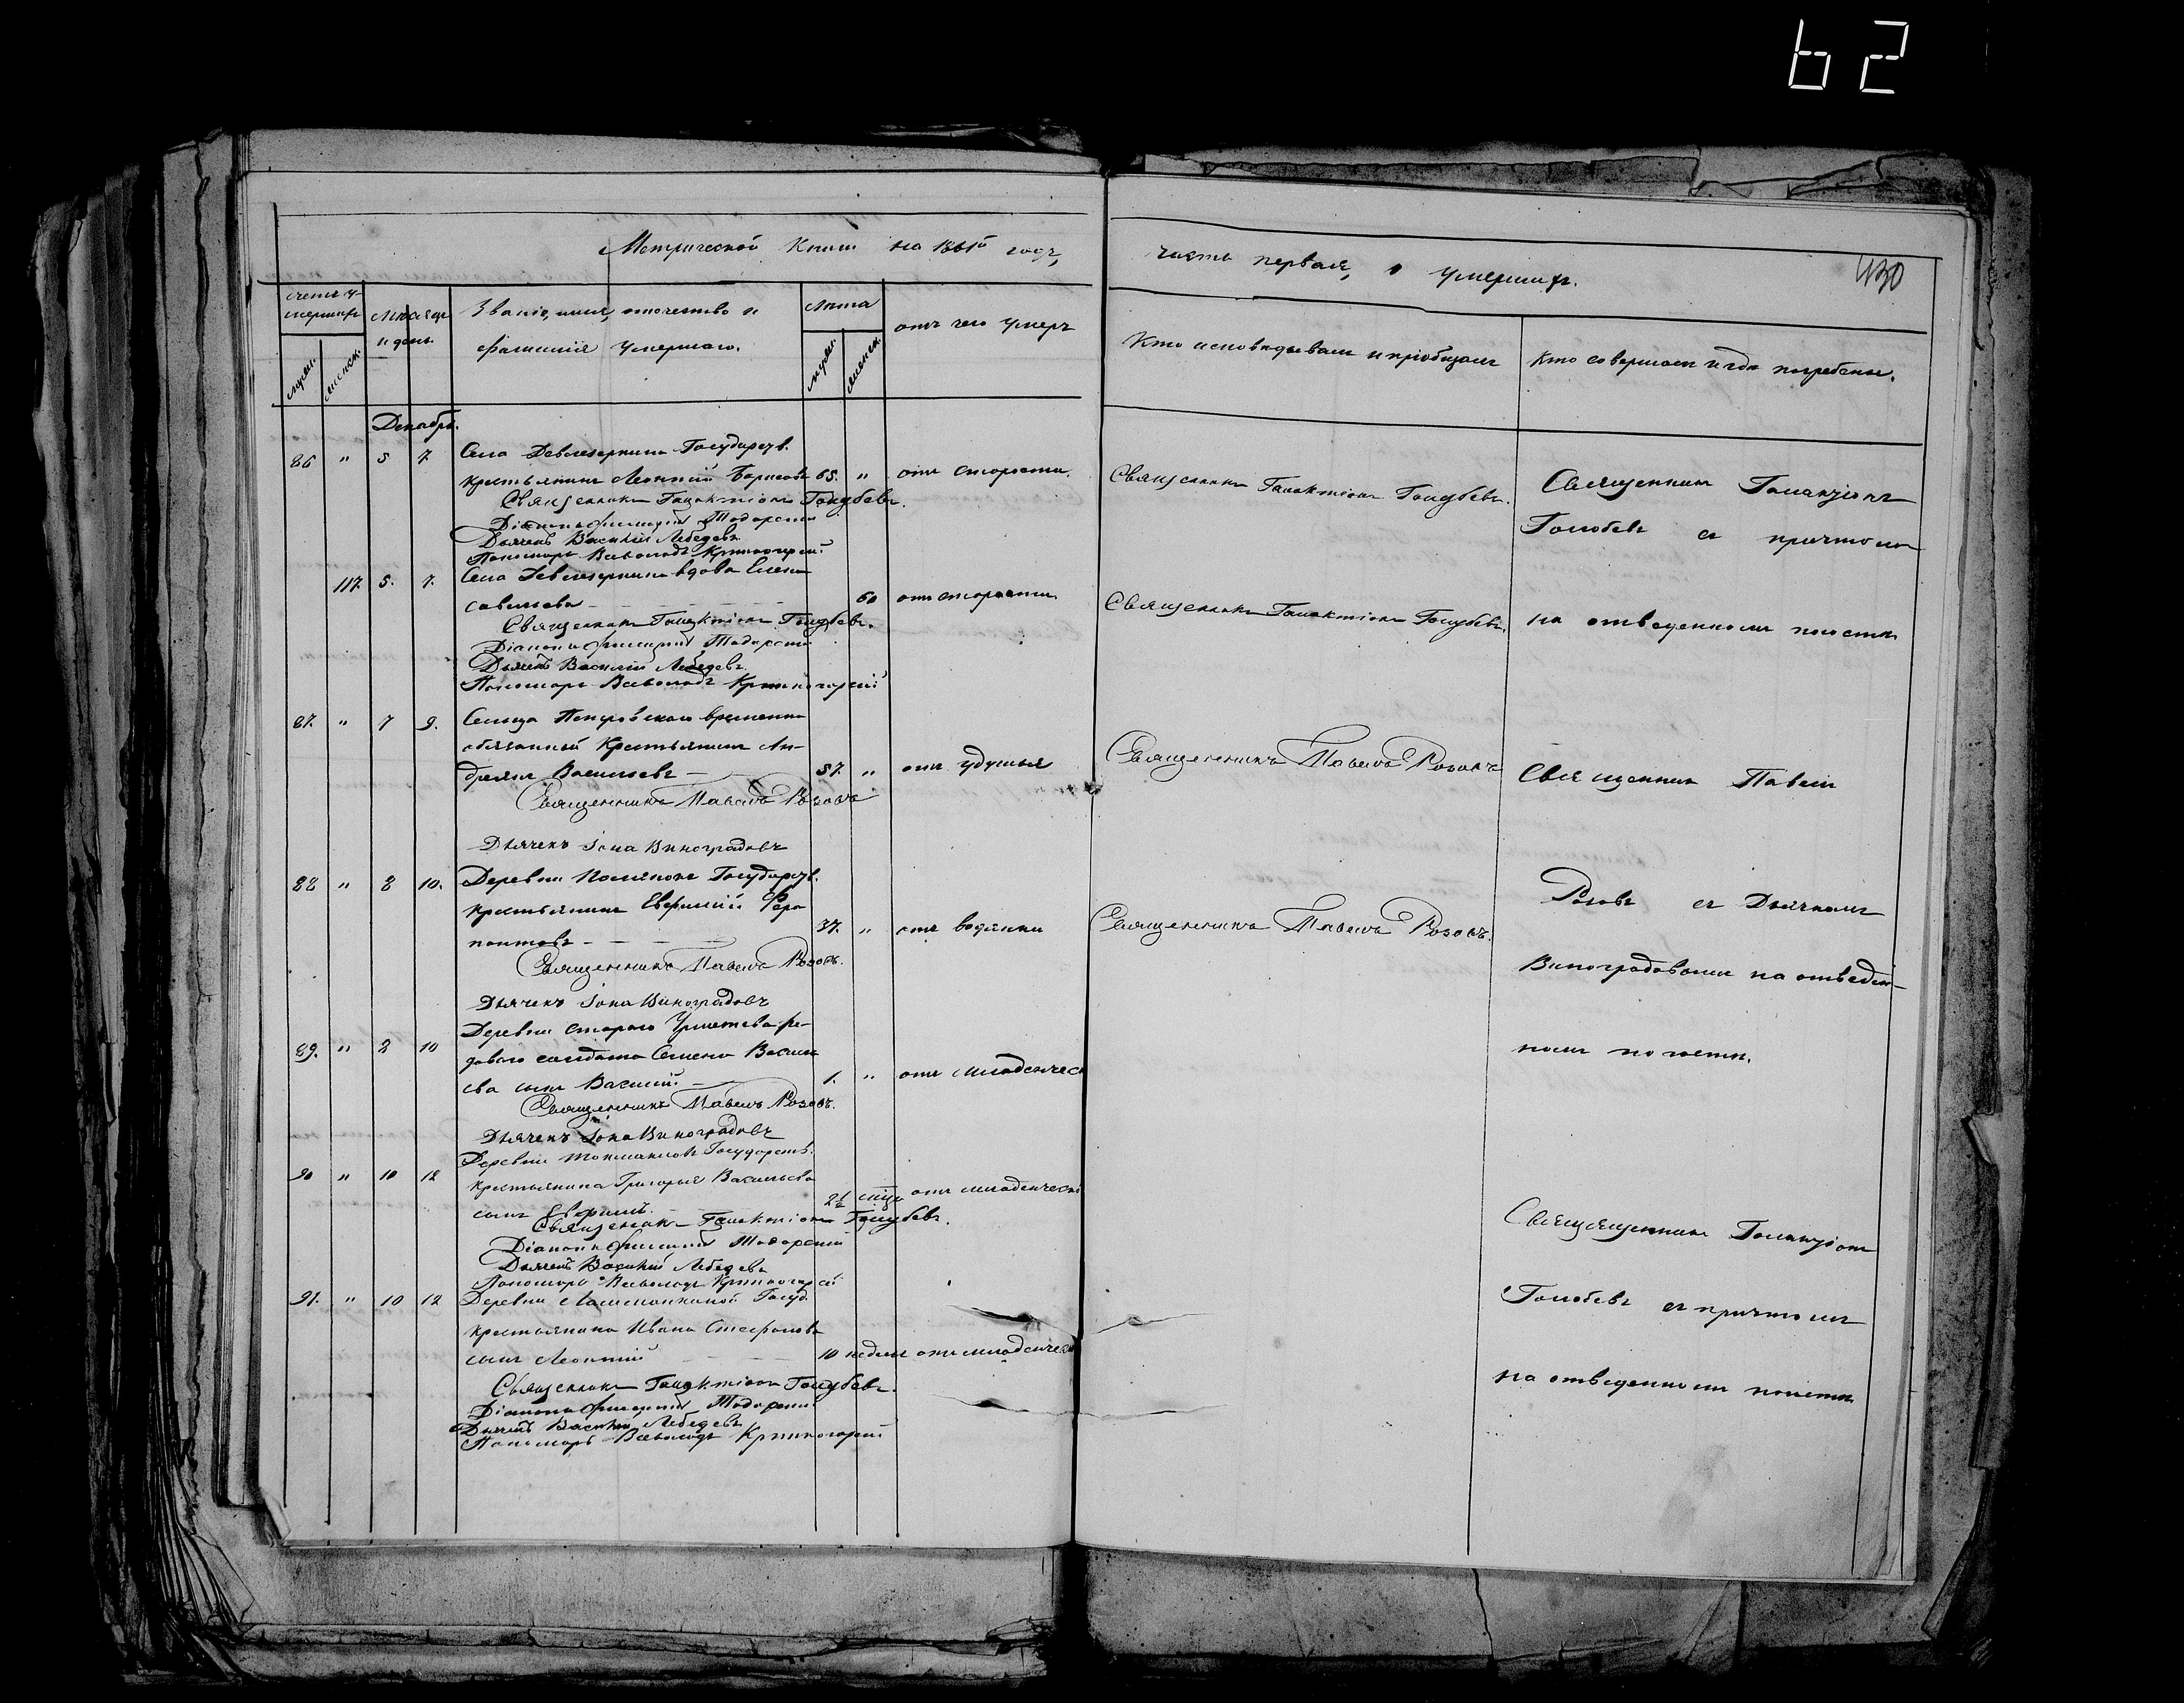 62
Метрической Книги на 1861й годъ,
часть первая, о умершихъ.
430
счетъ у-
мершихъ
Мѣсяцъ
и день.
Званіе, имя, отчество и
фамилія умершаго.
Лѣта
отъ чего умеръ
Кто исповѣдывалъ и пріобщалъ
Кто совершалъ и гдѣ погребены.
мужск.
женск.
мужск.
женск.
Декабрь.
86 " 5 7 Села Девлезеркина Государств.
крестьянинъ Леонтій Борисовъ 65. " отъ старости.
Священникъ Галактіонъ Голубевъ.
Священникъ Галактіонъ
Голубевъ съ причтомъ
Священникъ Галактіонъ Голубевъ.
Діаконъ Тодорскій
Дьячекъ Василій Лебедевъ
Пономарь Всеволодъ
117. 5. 7. Села Девлезеркина вдова Елена
Савельева 60 отъ старости
Священникъ Галактіонъ Голубевъ.
на отведенномъ мѣстѣ
Священникъ Галактіонъ Голубевъ.
Діаконъ Тодорскій
Дьячекъ Василій Лебедевъ
Пономарь Всеволодъ
87. " 7 9. Сельца Петровскаго временно
обязанный Крестьянинъ Ан-
дреянъ Васильевъ 57. " отъ удушья
Священникъ Павелъ Розовъ
Священникъ Павелъ
Священникъ Павелъ Розовъ
Дьячекъ Іона Виноградовъ
88 " 8 10. Деревни Государств.
крестьянинъ Евфимій Фера
понтовъ 37. " отъ водянки
Священникъ Павелъ Розовъ.
Розовъ съ Дьячкомъ
Виноградовымъ на отведен-
номъ мѣстѣ.
Священникъ Павелъ Розовъ.
Дьячекъ Іона Виноградовъ
Деревни Стараго Урметева ря-
89. " 8 10 доваго солдата Семена Василь
ева сынъ Василій. 1. " отъ младенческ
Священникъ Павелъ Розовъ.
Дьячекъ Іона Виноградовъ
Деревни Государств.
90 " 10 12 крестьянина Григорья Васильева
сынъ Евфимій. 2½ отъ младенческ
Священникъ Галактіонъ Голубевъ.
Діаконъ Тодорскій
Дьячекъ Василій Лебедевъ
Пономарь Всеволодъ
Священникъ Галактіонъ
Голубевъ съ причтомъ
на отведенномъ мѣстѣ
91. " 10 12 Деревни Госуд.
крестьянина Ивана Стефанова
сынъ Леонтій 10 недель отъ младенческ
Священникъ Галактіонъ Голубевъ.
Діаконъ Тодорскій
Дьячекъ Василій Лебедевъ
Пономарь Всеволодъ